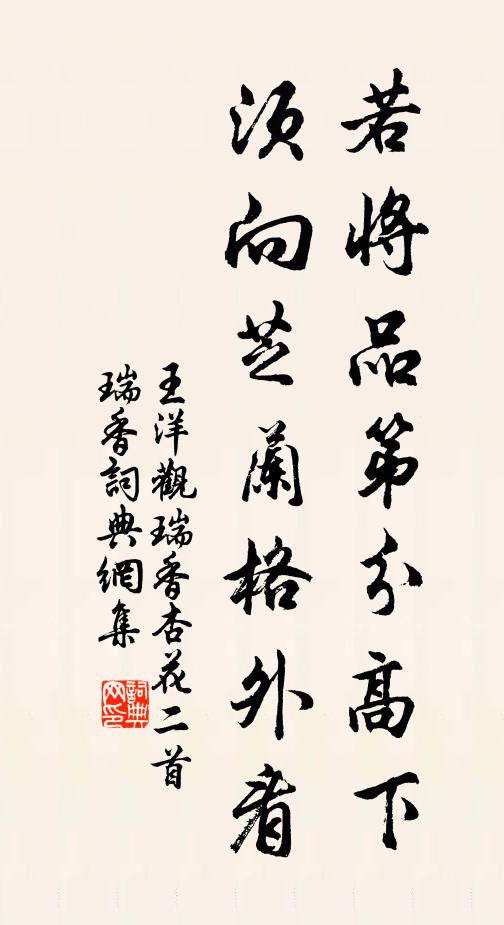 若將品第分高下
須向芝蘭格外看
王洋觀瑞香杏花二首
瑞香詞典網集
詞典網印